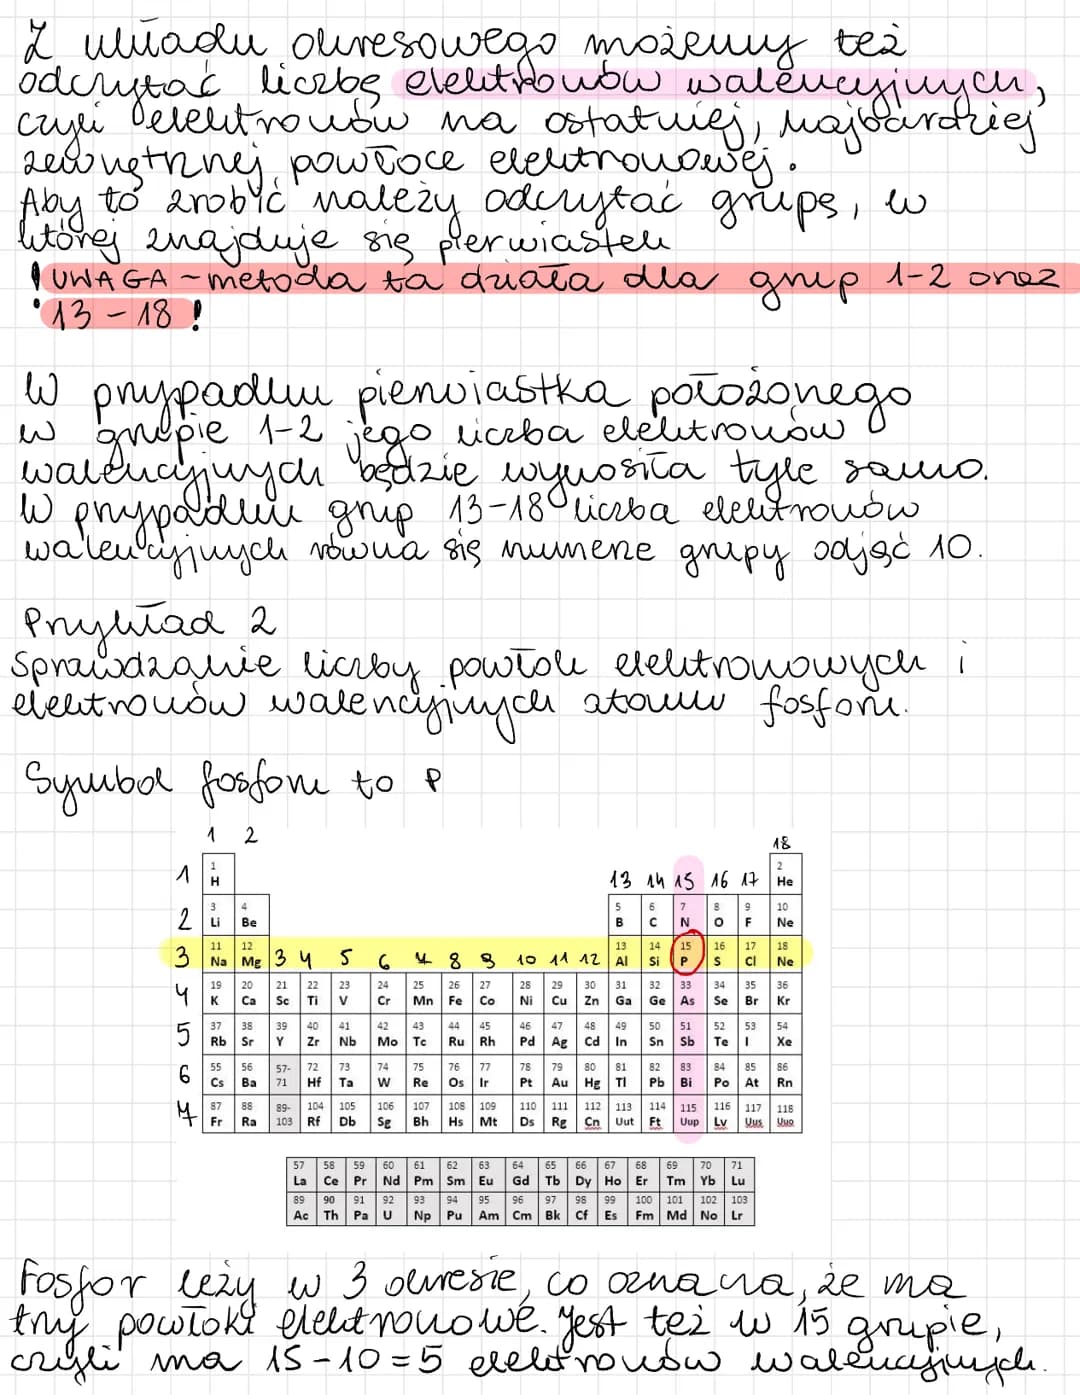 Z układu okresowego możemy też
odczytać liczbę elektronów walencyjnych,
czyli elektronów na ostatniej, najbardziej
zewnętrznej powłoce elektronowej.
Aby to zrobić należy odczytać grupę, w
której znajduje się pierwiastek
! UWAGA - metoda ta działa dla grup 1-2 oraz
13-18 !
W przypadku pierwiastka położonego
w grupie 1-2 jego liczba elektronów
walencyjnych będzie wynosiła tyle samo.
W przypadku grup 13-18 liczba elektronów
walencyjnych równa się numerze grupy odjąć 10.
Przykład 2
Sprawdzanie liczby powłok elektronowych i
elektronów walencyjnych atomu fosforu.
Symbol fosforu to P
1 2 18
1 1 13 14 15 16 17 2
H He
2 3 4 5 6 7 8 9 10
Li Be B C N O F Ne
3 11 12 3 4 5 6 7 8 9 10 11 12 13 14 15 16 17 18
Na Mg Al Si P S Cl Ne
4 19 20 21 22 23 24 25 26 27 28 29 30 31 32 33 34 35 36
K Ca Sc Ti V Cr Mn Fe Co Ni Cu Zn Ga Ge As Se Br Kr
5 37 38 39 40 41 42 43 44 45 46 47 48 49 50 51 52 53 54
Rb Sr Y Zr Nb Mo Tc Ru Rh Pd Ag Cd In Sn Sb Te I Xe
6 55 56 57- 72 73 74 75 76 77 78 79 80 81 82 83 84 85 86
Cs Ba 71 Hf Ta W Re Os Ir Pt Au Hg Tl Pb Bi Po At Rn
7 87 88 89- 104 105 106 107 108 109 110 111 112 113 114 115 116 117 118
Fr Ra 103 Rf Db Sg Bh Hs Mt Ds Rg Cn Uut Ft Uup Lv Uus Uuo
57 58 59 60 61 62 63 64 65 66 67 68 69 70 71
La Ce Pr Nd Pm Sm Eu Gd Tb Dy Ho Er Tm Yb Lu
89 90 91 92 93 94 95 96 97 98 99 100 101 102 103
Ac Th Pa U Np Pu Am Cm Bk Cf Es Fm Md No Lr
Fosfor leży w 3 okresie, co oznacza, że ma
trzy powłoki elektronowe. Jest też w 15 grupie,
czyli ma 15-10=5 elektronów walencyjnych.